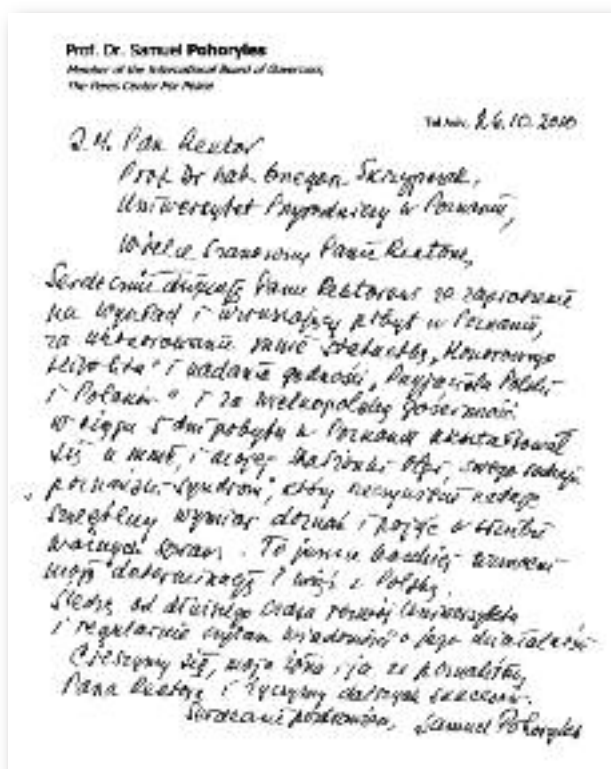 Prof. Dr. Samuel Pohoryles
Member of the International Board of Governors,
The Peres Center For Peace
Tel Aviv, 26.10.2010
J.M. Pan Rektor
Prof. Dr hab. Grzegorz Skrzypczak,
Uniwersytet Przyrodniczy w Poznaniu,
Wielce Szanowny Panie Rektorze,
Serdecznie dziękuję Panu Rektorowi za zaproszenie
na wykład i wzruszający pobyt w Poznaniu,
za uhonorowanie mnie statuetką „Honorowego
i nadanie godności „Przyjaciela Polski
i Polaków" i za wielkopolską gościnność.
W ciągu 5 dni pobytu w Poznaniu ukształtował
się u mnie, i mojej małżonki Olgi, swego rodzaju
„poznański syndrom", który niewątpliwie nadaje
wymiar doznań i pojęć o
ważnych spraw. To jeszcze bardziej wzmocni
moją determinację i więź z Polską.
Śledzę od dłuższego czasu rozwój Uniwersytetu
i regularnie czytam wiadomości o jego działalności.
Cieszymy się, moja żona i ja, że poznaliśmy
Pana Rektora i życzymy dalszych sukcesów.
Serdecznie pozdrawiam, Samuel Pohoryles